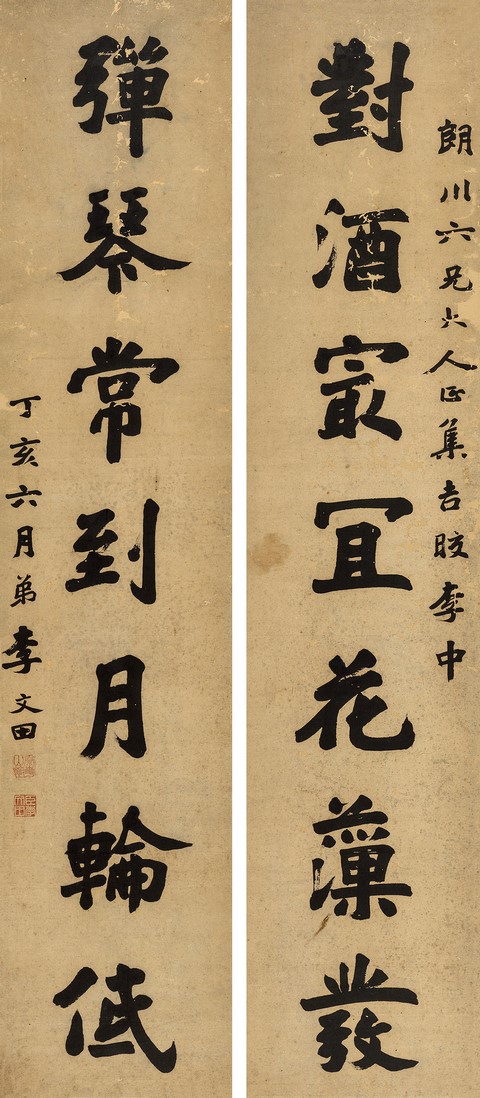 朗川六兄大人正集吉晈李中
對酒冣冝花藻發
彈琴常到月輪低
丁亥六月弟李文田